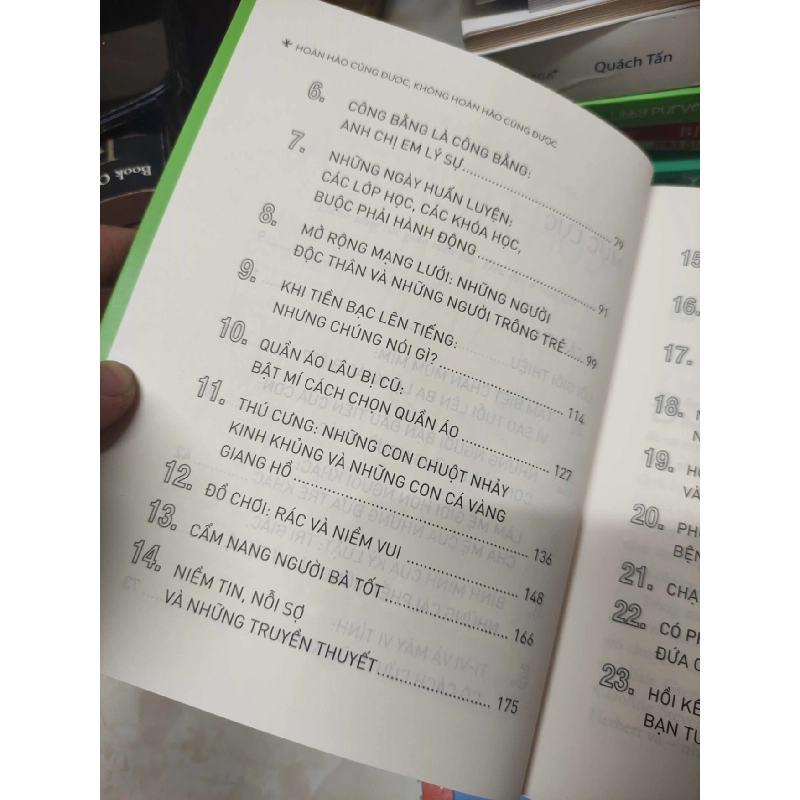 HOÀN HẢO CŨNG ĐƯỢC, KHÔNG HOÀN HẢO CŨNG ĐƯỢC
6. CÔNG BẰNG LÀ CÔNG BẰNG:
ANH CHỊ EM LÝ SỰ 79
7. NHỮNG NGÀY HUẤN LUYỆN:
CÁC LỚP HỌC, CÁC KHÓA HỌC,
BUỘC PHẢI HÀNH ĐỘNG 91
8. MỞ RỘNG MẠNG LƯỚI: NHỮNG NGƯỜI
ĐỘC THÂN VÀ NHỮNG NGƯỜI TRÔNG TRẺ 99
9. KHI TIỀN BẠC LÊN TIẾNG:
NHƯNG CHÚNG NÓI GÌ? 114
10. QUẦN ÁO LÂU BỊ CŨ:
BẬT MÍ CÁCH CHỌN QUẦN ÁO 127
11. THÚ CƯNG: NHỮNG CON CHUỘT NHẢY
KINH KHỦNG VÀ NHỮNG CON CÁ VÀNG
GIANG HỒ 136
12. ĐỒ CHƠI: RÁC VÀ NIỀM VUI 148
13. CẨM NANG NGƯỜI BÀ TỐT 166
14. NIỀM TIN, NỖI SỢ
VÀ NHỮNG TRUYỀN THUYẾT 175
15.
16.
17.
18.
19.
VÀ
20.
BỆN
21.
22. CÓ
ĐỨA
23. HỒI
BẠN
Quách Tấn
Book